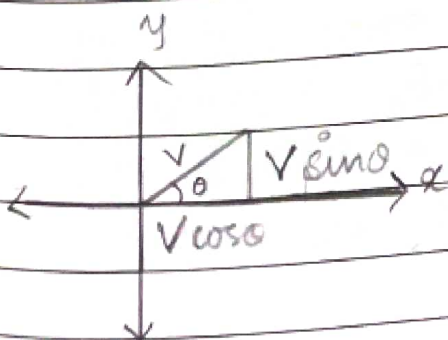 y
V
θ
V sinθ
x
V cosθ